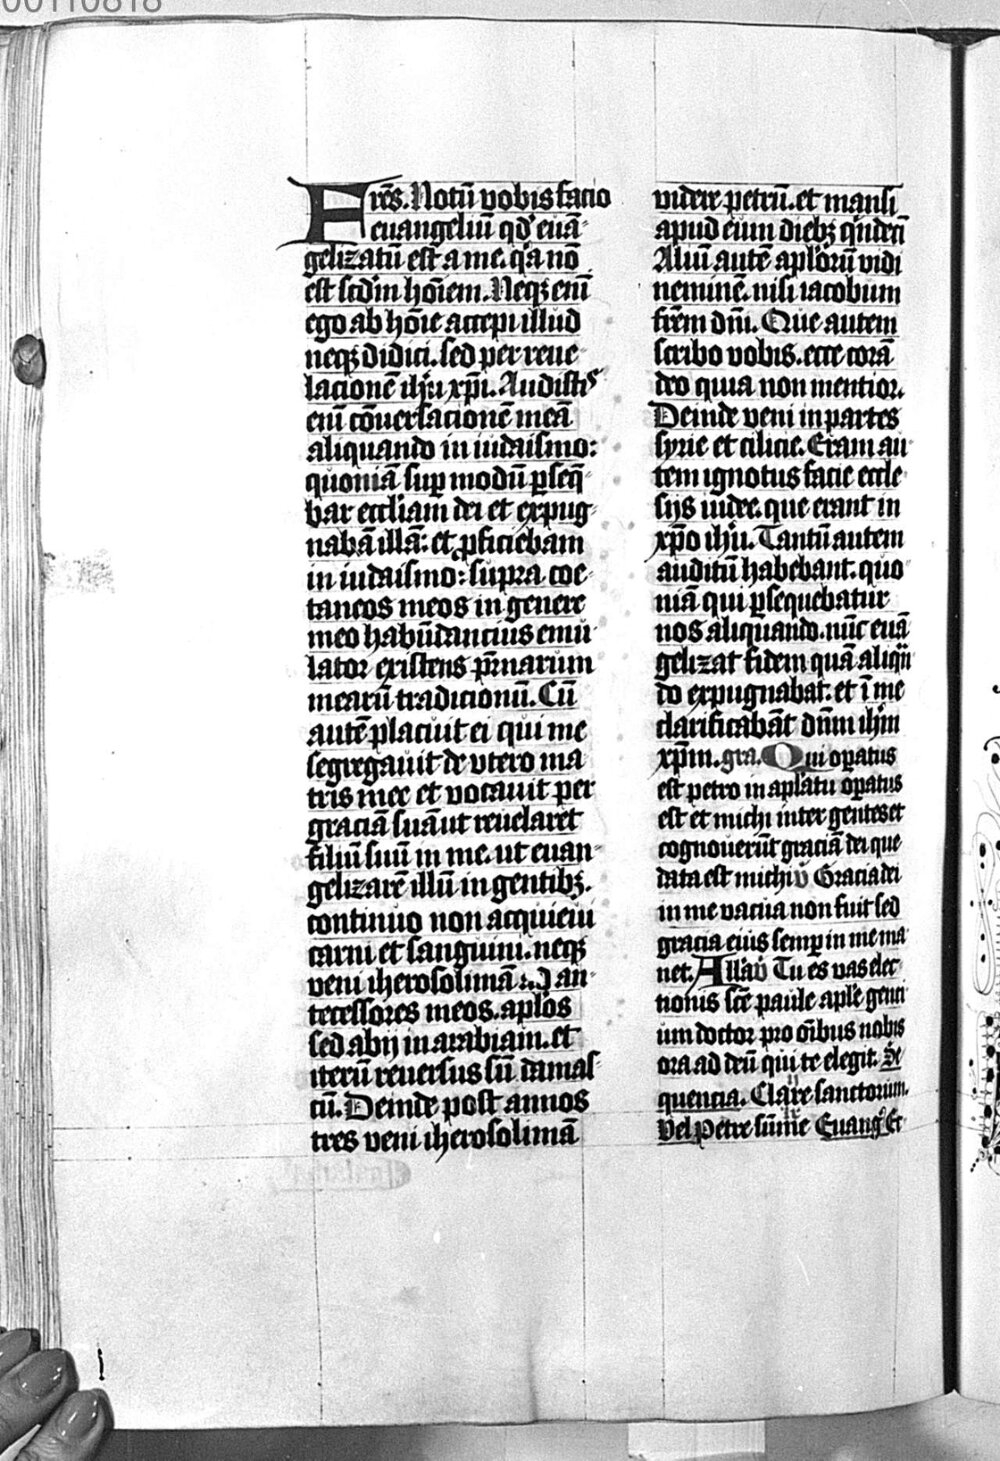 00110818
Fres. Notū vobis facio
euangeliū qd' euā-
gelizatū est a me. q'a nō
est scd'm hōiem. Neqꝫ enī
ego ab hōie accepi illud
neqꝫ didici. sed per reue
lacionē ihū xpī. Audistis
enī cōuersacionē meā
aliquando in iudaismo:
quoniā suꝑ modū ꝑseq̄-
bar eccliam dei et expug-
nabā illā: et ꝓficiebam
in iudaismo: supra coe-
taneos meos in genere
meo habūdancius emu-
lator existens pr̄narum
mearū tradicionū. Cū
autē placuit ei qui me
segregauit de vtero ma
tris mee et vocauit per
graciā suā ut reuelaret
filiū suū in me. ut euan-
gelizarē illū in gentibꝫ.
continuo non acquieui
carni et sanguini. neqꝫ
veni iherosolimā an-
tecessores meos. aplōs
sed abij in arabiam. et
iterū reuersus sū damas-
cū. Deinde post annos
tres veni iherosolimā
videre petrū. et mansi
apud eum diebꝫ q'ndecī
Aliū autē apl'orū vidi
neminē. nisi iacobum
frēm dnī. Que autem
scribo vobis. ecce corā
deo quia non mentior.
Deinde veni in partes
syrie et cilicie. Eram au
tem ignotus facie eccle
sijs iudee. que erant in
xp̄o ihū. Tantū autem
auditū habebant. quo
niā qui ꝑsequebatur
nos aliquando. nūc euā
gelizat fidem quā aliqn̄
do expugnabat. et ī me
clarificabāt dnm ihm
xp̄m. gra. Qui oꝑatus
est petro in apl'atu oꝑatus
est et michi inter gentes et
cognouerūt graciā dei que
data est michi v̄ Gracia dei
in me vacua non fuit sed
gracia eius semꝑ in me ma
net. Allā v̄ Tu es vas elec
tionis scē paule aplē genti
um doctor pro oībus nobis
ora ad deū qui te elegit. Se
quencia. Clare sanctorum.
Vel Petre sūme Euang' Et